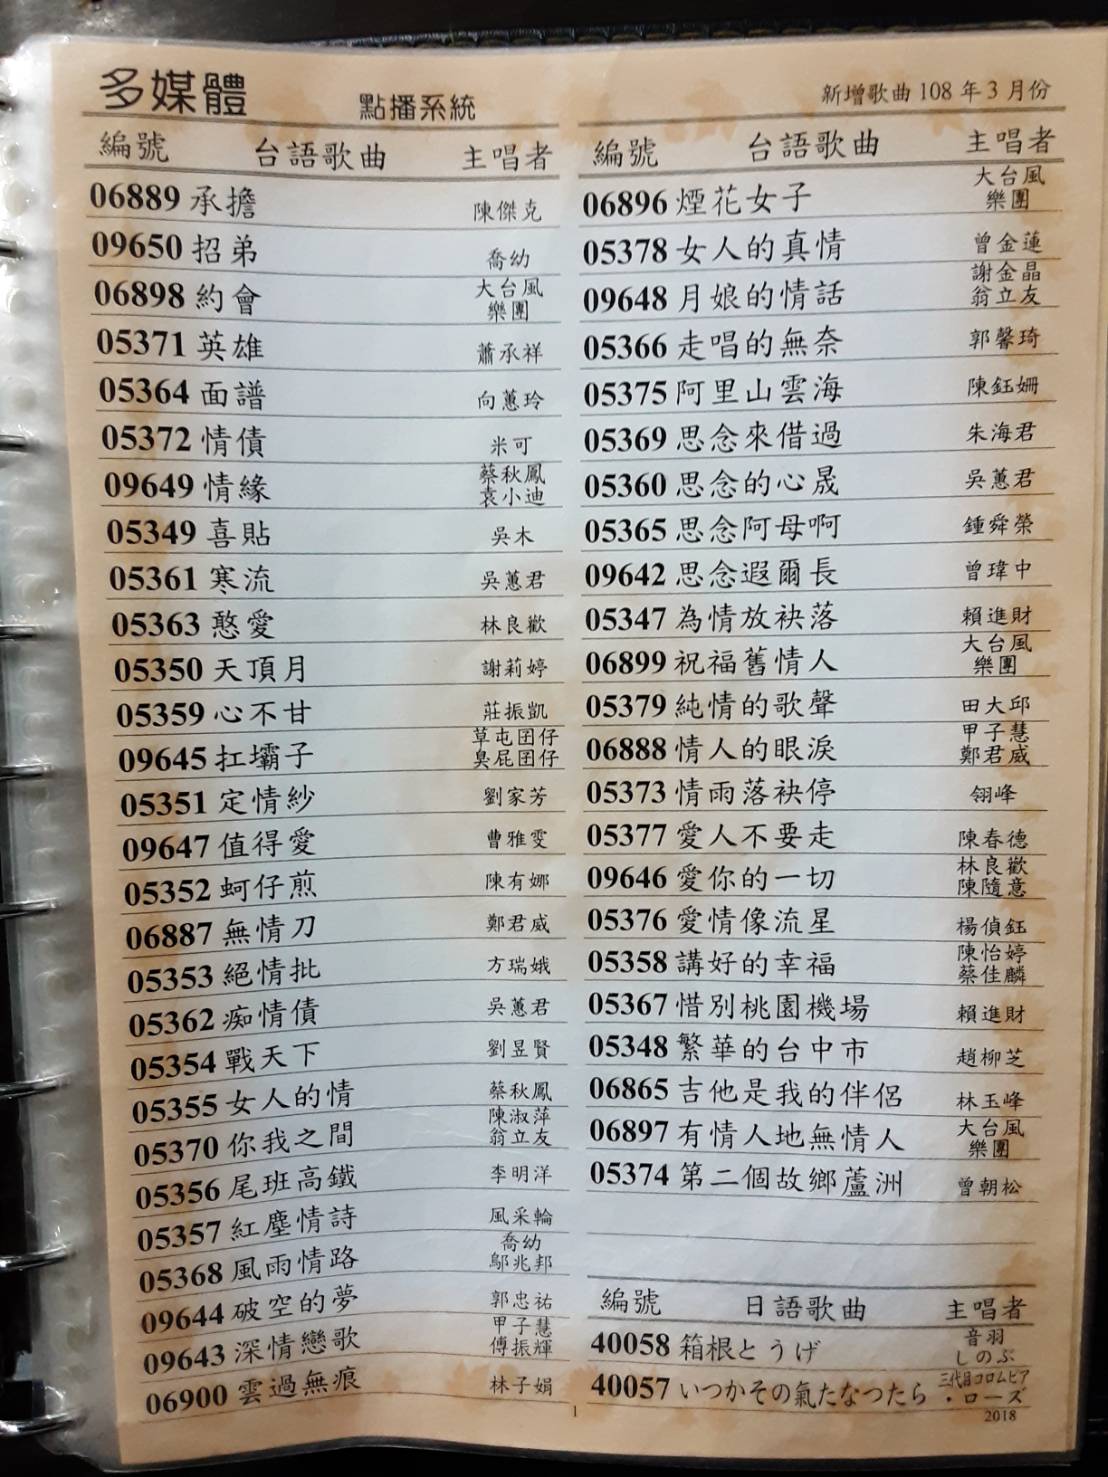 多媒體 點播系統
新增歌曲 108 年 3 月份
編號 台語歌曲 主唱者
06889 承擔 陳傑克
09650 招弟 喬幼
06898 約會 大台風樂團
05371 英雄 蕭承祥
05364 面譜 向蕙玲
05372 情債 米可
09649 情緣 蔡秋鳳 袁小迪
05349 喜貼 吳木
05361 寒流 吳蕙君
05363 憨愛 林良歡
05350 天頂月 謝莉婷
05359 心不甘 莊振凱
09645 扛壩子 草屯囝仔 臭屁囝仔
05351 定情紗 劉家芳
09647 值得愛 曹雅雯
05352 蚵仔煎 陳有娜
06887 無情刀 鄭君威
05353 絕情批 方瑞娥
05362 痴情債 吳蕙君
05354 戰天下 劉昱賢
05355 女人的情 蔡秋鳳
05370 你我之間 陳淑萍 翁立友
05356 尾班高鐵 李明洋
05357 紅塵情詩 風采輪
05368 風雨情路 喬幼 鄔兆邦
09644 破空的夢 郭忠祐
09643 深情戀歌 甲子慧 傅振輝
06900 雲過無痕 林子娟
編號 台語歌曲 主唱者
06896 煙花女子 大台風樂團
05378 女人的真情 曾金蓮
09648 月娘的情話 謝金晶 翁立友
05366 走唱的無奈 郭馨琦
05375 阿里山雲海 陳鈺姍
05369 思念來借過 朱海君
05360 思念的心晟 吳蕙君
05365 思念阿母啊 鍾舜榮
09642 思念遐爾長 曾瑋中
05347 為情放袂落 賴進財
06899 祝福舊情人 大台風樂團
05379 純情的歌聲 田大邱
06888 情人的眼淚 甲子慧 鄭君威
05373 情雨落袂停 翎峰
05377 愛人不要走 陳春德
09646 愛你的一切 林良歡 陳隨意
05376 愛情像流星 楊偵鈺
05358 講好的幸福 陳怡婷 蔡佳麟
05367 惜別桃園機場 賴進財
05348 繁華的台中市 趙柳芝
06865 吉他是我的伴侶 林玉峰
06897 有情人地無情人 大台風樂團
05374 第二個故鄉蘆洲 曾朝松
編號 日語歌曲 主唱者
40058 箱根とうげ 音羽しのぶ
40057 いつかその氣たなつたら 三代目コロムビア・ローズ
2018
1